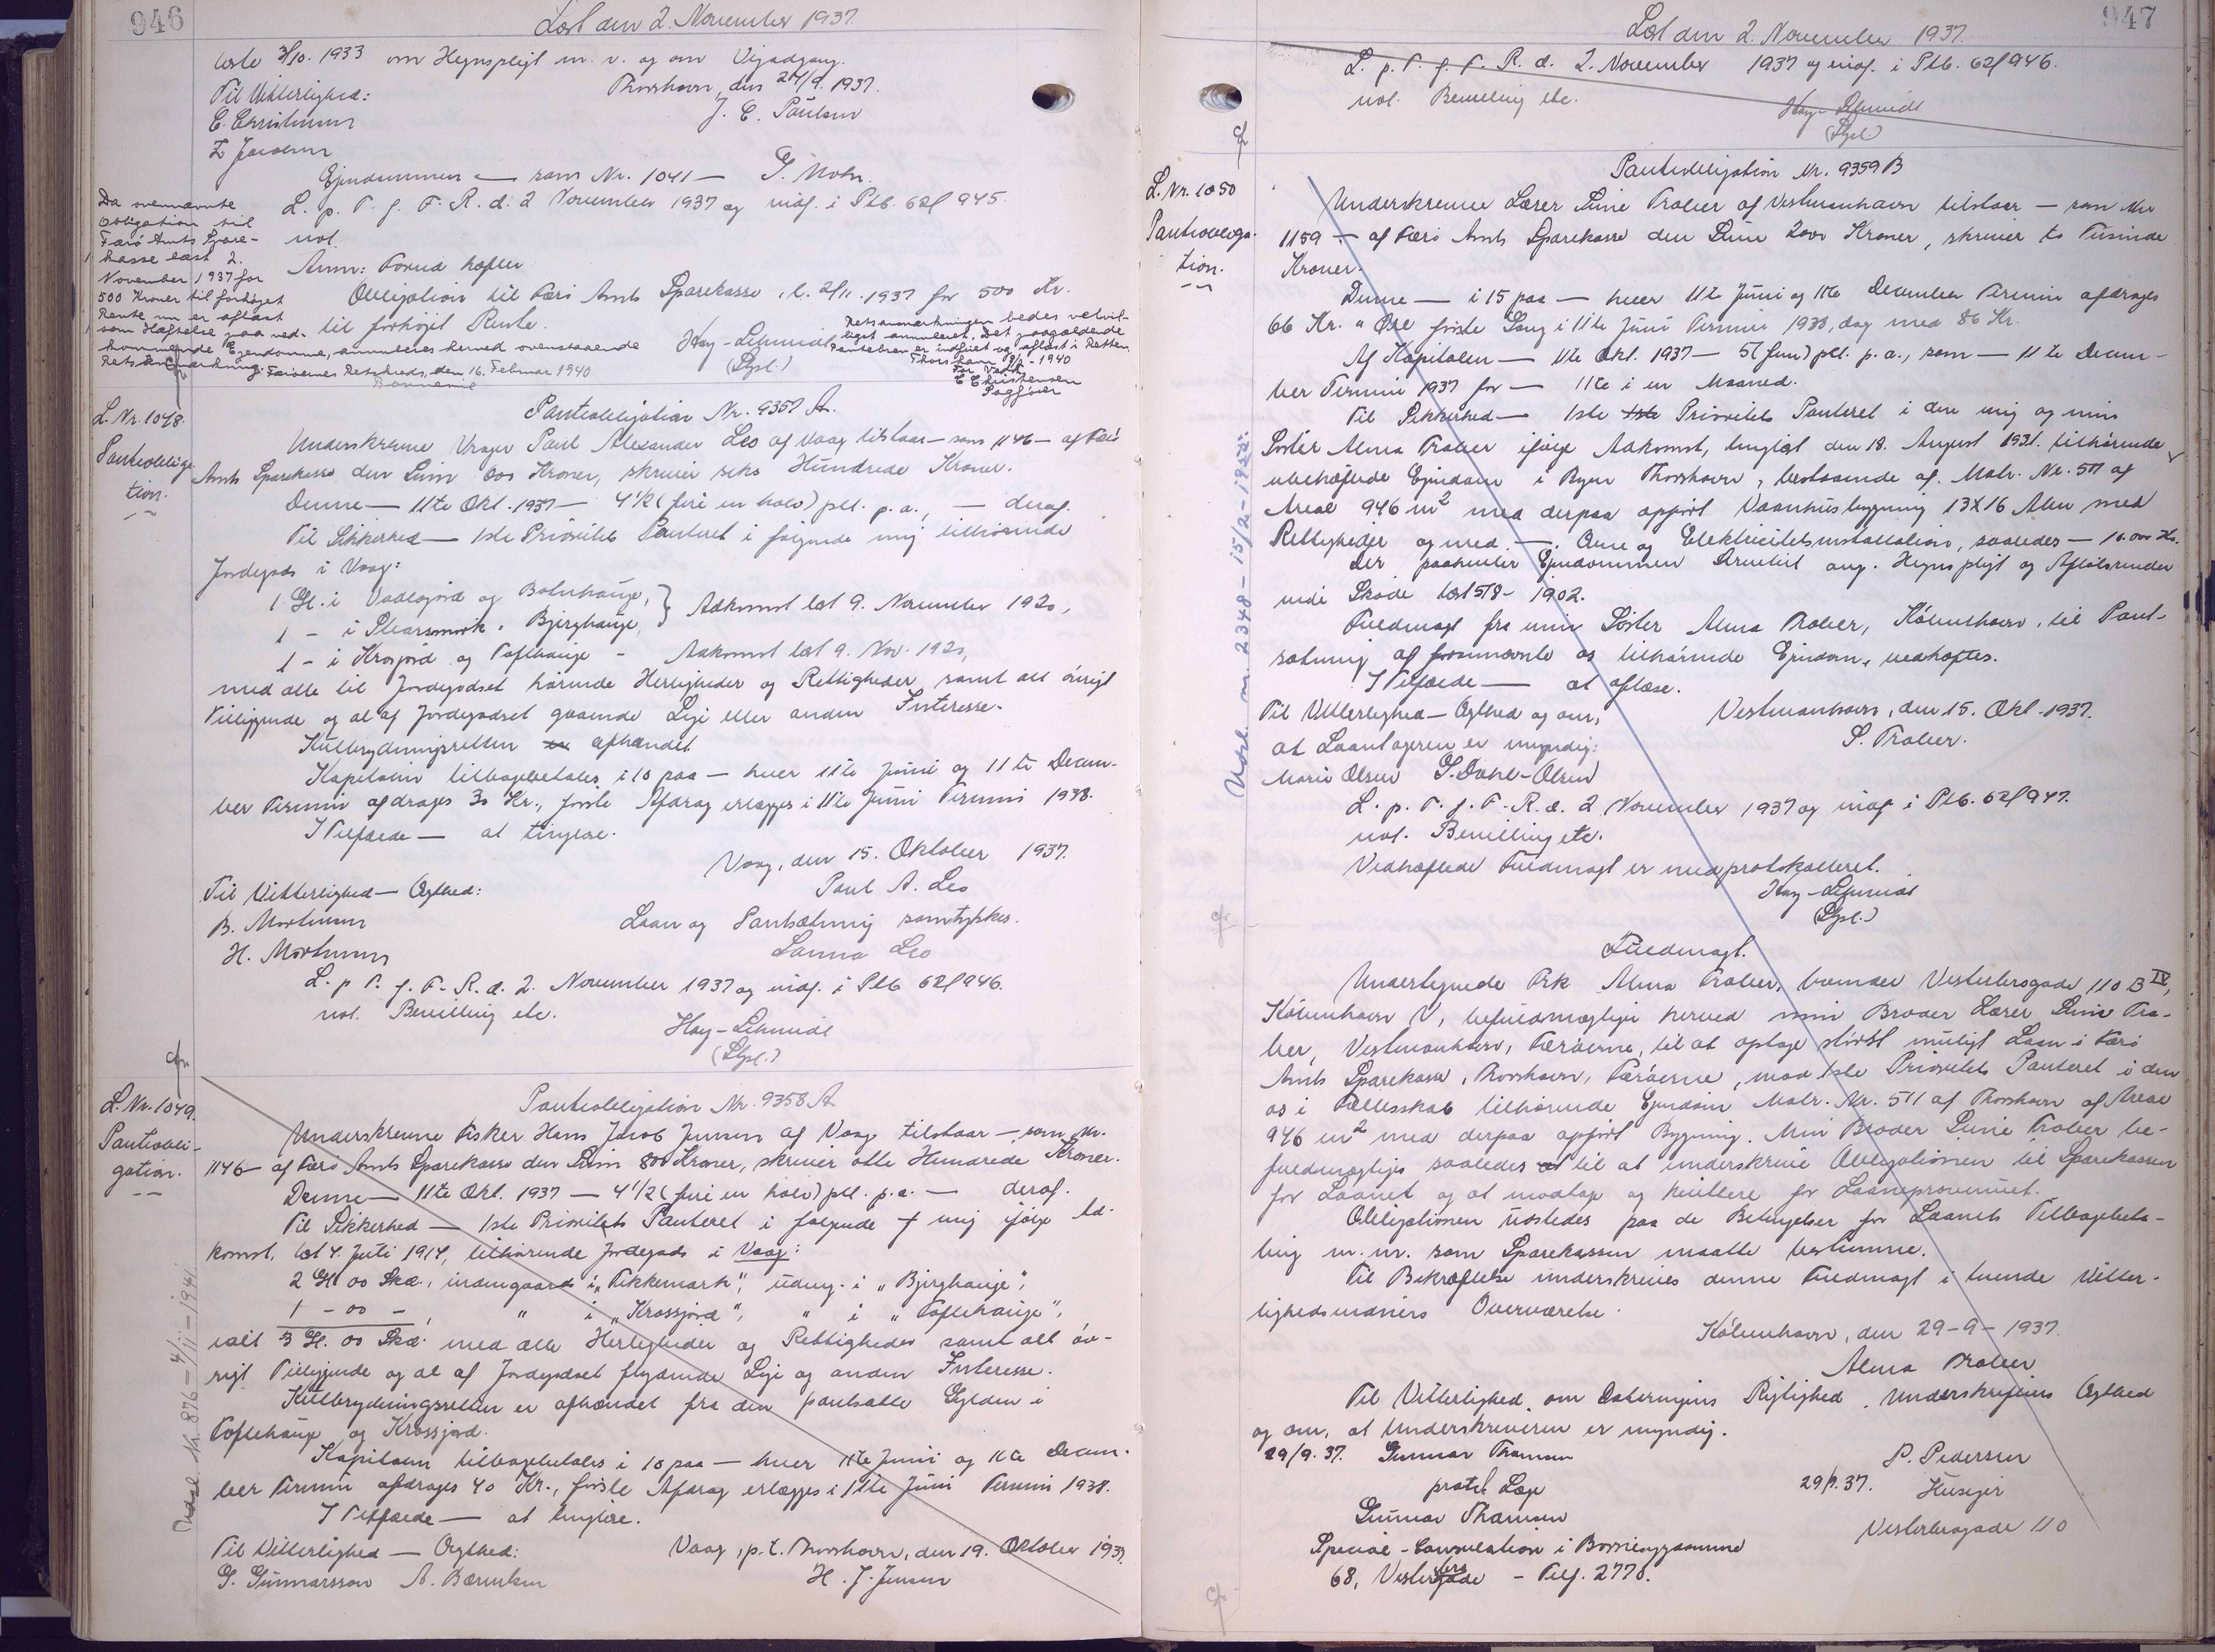 946
Læst den 2. November 1937.
læste 3/10. 1933 om Hegnspligt m. v. og om Vejadgang.
Til Vitterlighed: Thorshavn, den 24/9. 1937.
E. Christensen J. E. Paulsen
Z Jacobsen
Ejendommen — som Nr. 1041 — G. Mohr.
L. p. T. f. F. R. d. 2 November 1937 og indf. i Ptb. 62f 945.
vol.
Anm: Forud hæfter
Obligation til Færø Amts Sparekasse, l. 2/11. 1937 for 500 Kr.
til forhøjet Rente.
Hay-Schmidt
(Gpl.)
Da ovennævnte
Obligation til
Færø Amts Spare-
kasse læst 2.
November 1937 for
500 Kroner til forhøjet
Rente nu er aflæst
som Hæftelse paa ved-
kommende Ejendomme, annulleres herved ovenstaaende
Retsanmærkning.
Færøernes Retskreds, den 16. Februar 1940
Retsanmærkningen bedes velvil-
ligst annulleret, det paagældende
Pantebrev er indfriet og aflæst i Retten.
Thorshavn, 8/2 - 1940
E Christensen
Sagfører
L. Nr. 1048.
Pantobliga-
tion.
Pantobligation Nr. 9357 A.
Underskrevne Vrager Paul Alexander Leo af Vaag tilstaar — som 1146 — af Færø
Amts Sparekasse den Sum 600 Kroner, skriver seks Hundrede Kroner.
Denne — 11te Okt. 1937 — 4 1/2 (fire en halv) pCt. p. a., — deraf.
Til Sikkerhed — 1ste Prioritets Panteret i følgende mig tilhørende
Jordegods i Vaag:
1 Gl. i Vadesjørd og Botnhauge, } Adkomst læst 9. November 1920,
1 - i Skarsmørk. Bjerghauge,
1 - i Krosjørd og Toftehauge - Adkomst læst 9. Nov. 1920,
med alle til Jordegodset hørende Herligheder og Rettigheder, samt alt øvrigt
Tilliggende og al af Jordegodset gaaende Leje eller anden Interesse.
Kulbrydningsretten er afhændet
Kapitalen tilbagebetales i 10 paa — hver 11te Juni og 11te Decem-
ber Termin afdrages 30 Kr., første Afdrag erlægges i 11te Juni Termin 1938.
I Tilfælde — at tinglyse.
Vaag, den 15. Oktober 1937.
Til Vitterlighed — Ægthed: Paul A. Leo
B. Mortensen Laan og Pantsætning samtykkes.
H. Mortensen Sanna Leo
L. p. T. f. F. R. d. 2. November 1937 og indf. i Ptb 62f 946.
vol. Bevilling etc.
Hay-Schmidt
(Gpl.)
L. Nr. 1049.
Pantobli-
gation.
Pantobligation Nr. 9358 A
Underskrevne Fisker Hans Jacob Jensen af Vaag tilstaar — som Nr.
1146 — af Færø Amts Sparekasse den Sum 800 Kroner, skriver otte Hundrede Kroner.
Denne — 11te Okt. 1937 — 4 1/2 (fire en halv) pCt. p. a. — deraf.
Til Sikkerhed — 1ste Prioritets Panteret i følgende mig ifølge Ad-
komst, læst 4. Juli 1914, tilhørende Jordegods i Vaag:
2 Gl. 00 Skd., indengaards i „Tikkemark“, udeng. i „Bjerghauge“,
1 - 00 -, " i „Krossjord“, " i „Toftehauge“,
ialt 3 Gl. 00 Skd. med alle Herligheder og Rettigheder samt alt øv-
rigt Tilliggende og al af Jordegodset flydende Leje og anden Interesse.
Kulbrydningsretten er afhændet fra den pantsatte Gylden i
Toftehauge og Krossjord.
Kapitalen tilbagebetales i 10 paa — hver 11te Juni og 11te Decem-
ber Termin afdrages 40 Kr., første Afdrag erlægges i 11te Juni Termin 1938.
I Tilfælde — at tinglyse.
Til Vitterlighed — Ægthed: Vaag, p. t. Thorshavn, den 19. Oktober 1937.
G. Gunnarsson A. Bærentsen H. J. Jensen
Udsl. Nr. 876 - 4/11 - 1941.
947
Læst den 2. November 1937.
L. p. T. f. F. R. d. 2. November 1937 og indf. i Ptb. 62f 946.
vol. Bevilling etc.
Hay-Schmidt
(Gpl.)
L. Nr. 1050
Pantobliga-
tion.
Pantobligation Nr. 9359 B
Underskrevne Lærer Sune Trolier af Vestmanhavn tilstaar — som Nr
1159 — af Færø Amts Sparekasse den Sum 2000 Kroner, skriver to Tusinde
Kroner.
Denne — i 15 paa — hver 11te Juni og 11te December Termin afdrages
66 Kr. " Øre første Gang i 11te Juni Termin 1938, dog med 86 Kr.
Af Kapitalen — 11te Okt. 1937 — 5 (fem) pCt. p. a., som — 11te Decem-
ber Termin 1937 for — 11te i en Maaned.
Til Sikkerhed — 1ste Prioritets Panteret i den mig og min
Søster Alma Trolier ifølge Adkomst, tinglæst den 18. August 1931. tilhørende
ubehæftede Ejendom i Byen Thorshavn, bestaaende af Matr. Nr. 511 af
Areal 946 m² med derpaa opført Vaanhusbygning 13X16 Alen med
Rettigheder og med — Ovne og Elektricitetsinstallation, saaledes — 10.000 Kr.
Der paahviler Ejendommen Servitut ang. Hegnspligt og Afløbsrender
inde Skøde læst 5/8 - 1902.
Fuldmagt fra min Søster Alma Trolier, København, til Pant-
sætning af fornævnte os tilhørende Ejendom, vedhæftes.
I Tilfælde — at aflæse.
Til Vitterlighed — Ægthed og om, Vestmanhavn, den 15. Okt. 1937.
at Laantageren er myndig: S. Trolier.
Marie Olsen S. Dahl-Olsen
L. p. T. f. F. R. d. 2 November 1937 og indf. i Ptb. 62f 947.
vol. Bevilling etc.
Vedhæftede Fuldmagt er medprotokolleret.
Hay-Schmidt
(Gpl.)
Fuldmagt.
Undertegnede Frk Alma Trolier, boende Vesterbrogade 110 B IV,
København V, befuldmægtiger herved min Broder Lærer Sune Tro-
lier, Vestmanhavn, Færøerne, til at optage størst muligt Laan i Færø
Amts Sparekasse, Thorshavn, Færøerne, mod 1ste Prioritets Panteret i den
os i Fællesskab tilhørende Ejendom Matr. Nr. 511 af Thorshavn af Areal
946 m² med derpaa opført Bygning. Min Broder Sune Trolier be-
fuldmægtiges saaledes til at underskrive Obligationen til Sparekassen
for Laanet og at modtage og kvittere for Laaneprovenuet.
Obligationen udstedes paa de Betingelser for Laanets Tilbagebeta-
ling m. m. som Sparekassen maatte bestemme.
Til Bekræftelse underskrives denne Fuldmagt i tvende Vitter-
lighedsmænds Overværelse.
København, den 29 - 9 - 1937.
Alma Trolier
Til Vitterlighed om Dateringens Rigtighed, Underskriftens Ægthed
og om, at Underskriveren er myndig.
29/9. 37. Gunnar Thomsen P. Pedersen
prakt. Læge 29/9. 37. Husejer
Gunnar Thomsen Vesterbrogade 110
Special-Consultation i
68, Vestergade - Telf. 2778.
Udsl. Nr. 2348 - 15/2 - 1955.